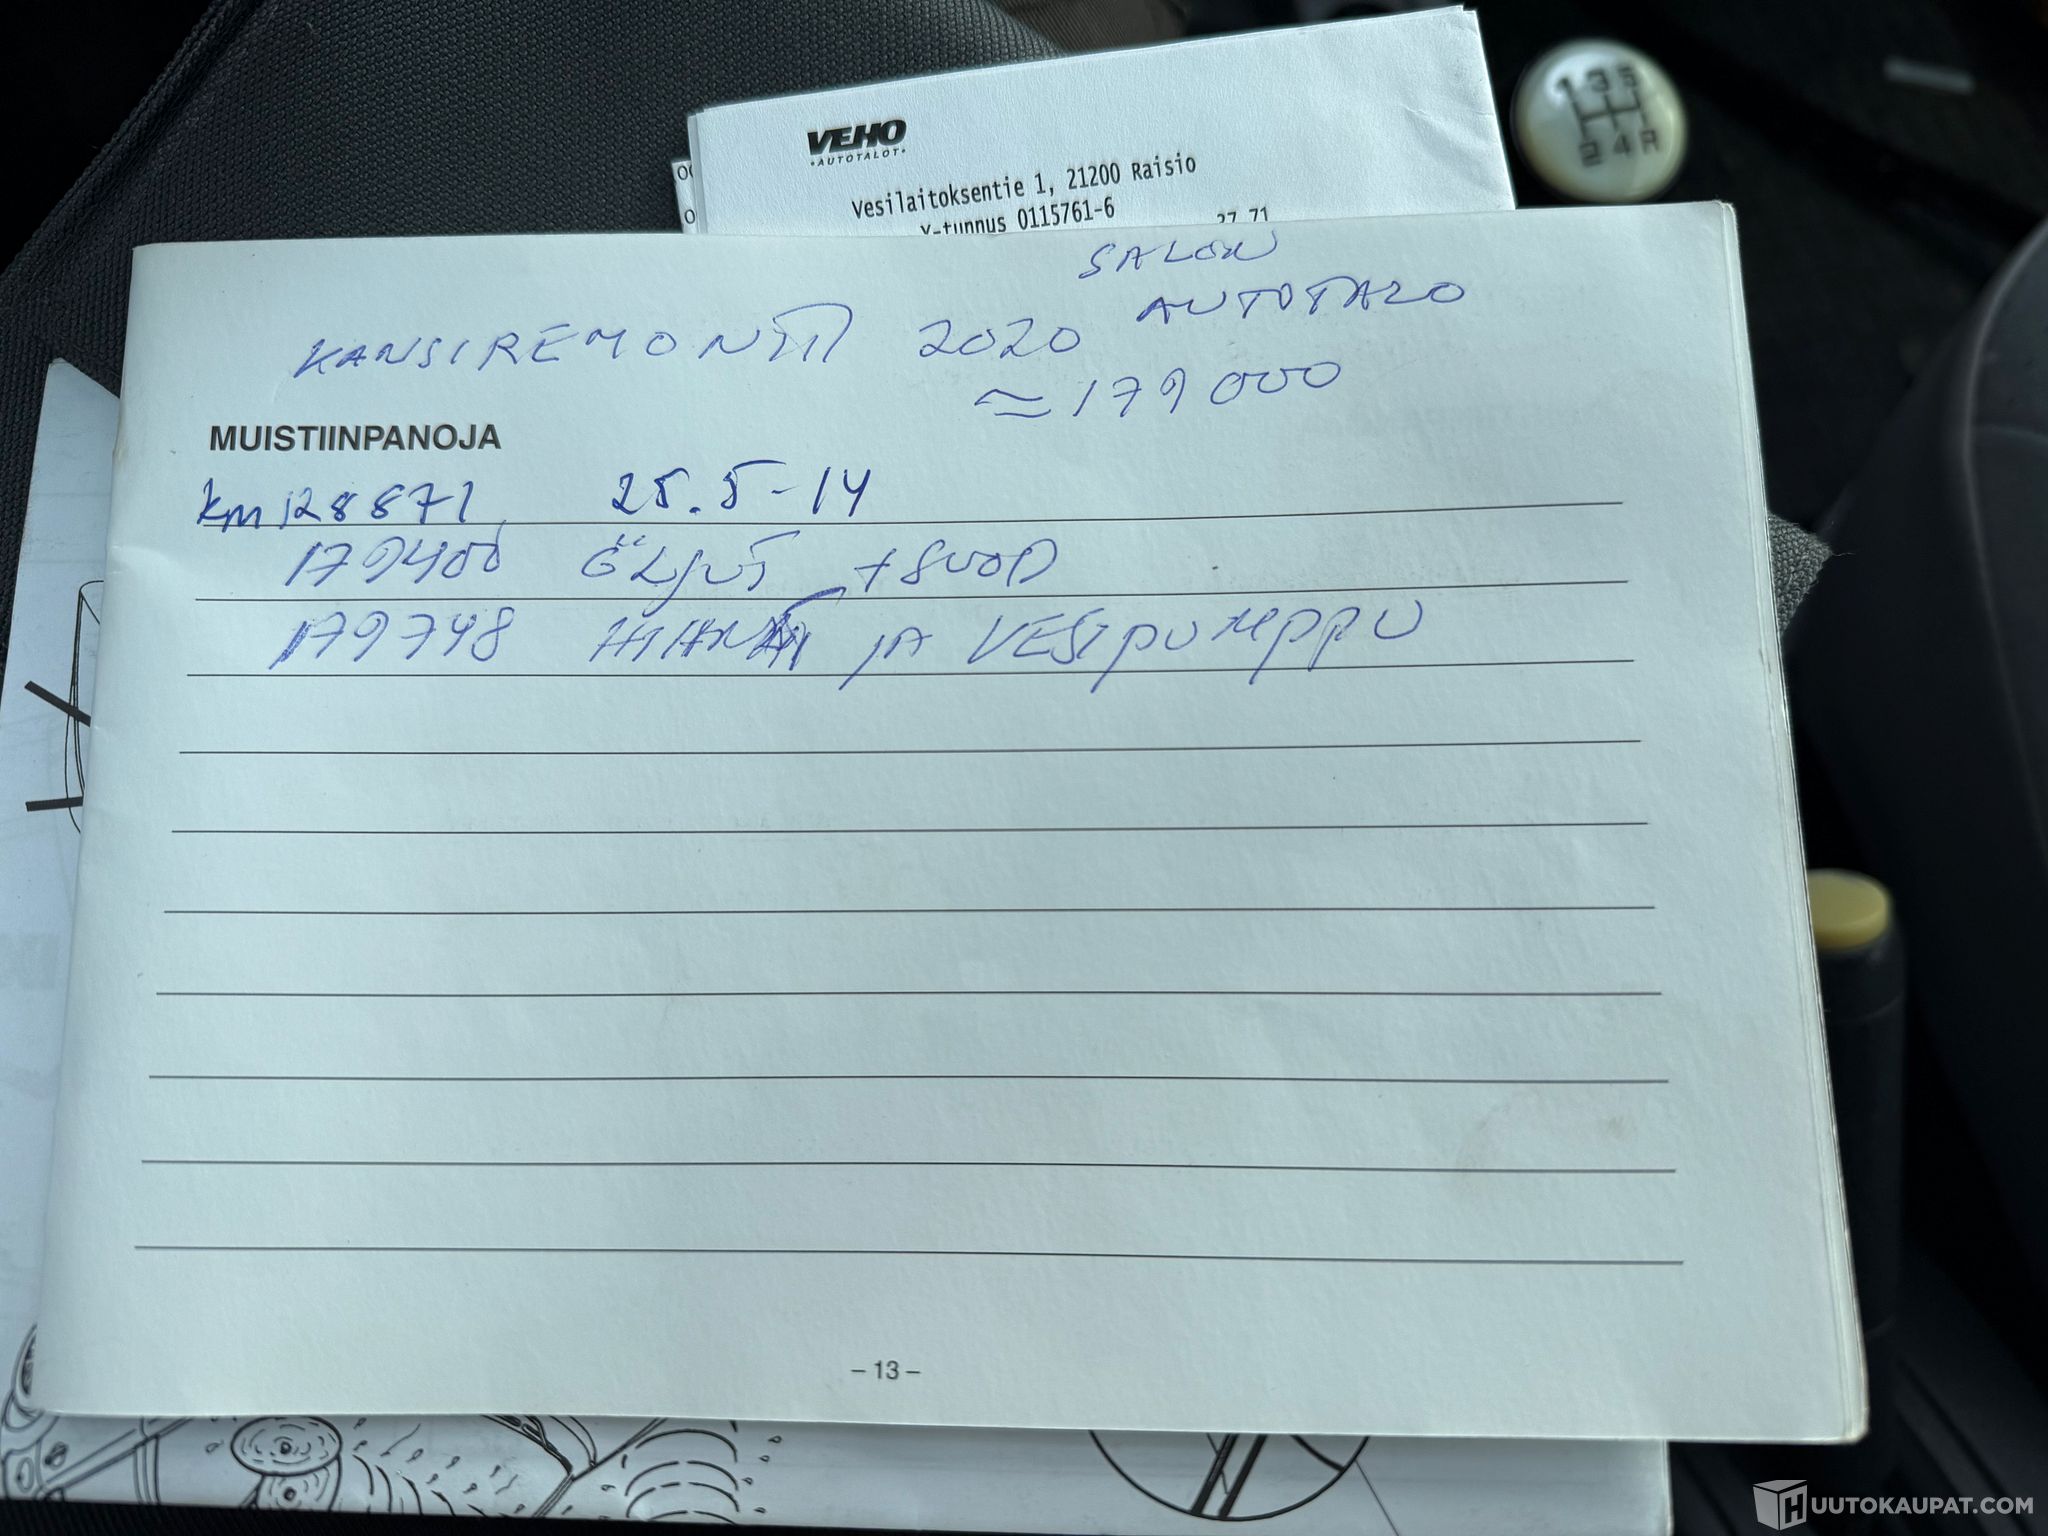 VEHO
AUTOTALOT
Vesilaitoksentie 1, 21200 Raisio
Y-tunnus 0115761-6
27 71
SALON
AUTOTALO
KANSIREMONTTI 2020
≈ 179 000
MUISTIINPANOJA
km 128871 25.5-14
179400 ÖLJYT + SUOD
179748 HIHNAT JA VESIPUMPPU
- 13 -
1 3 5
2 4 R
HUUTOKAUPAT.COM